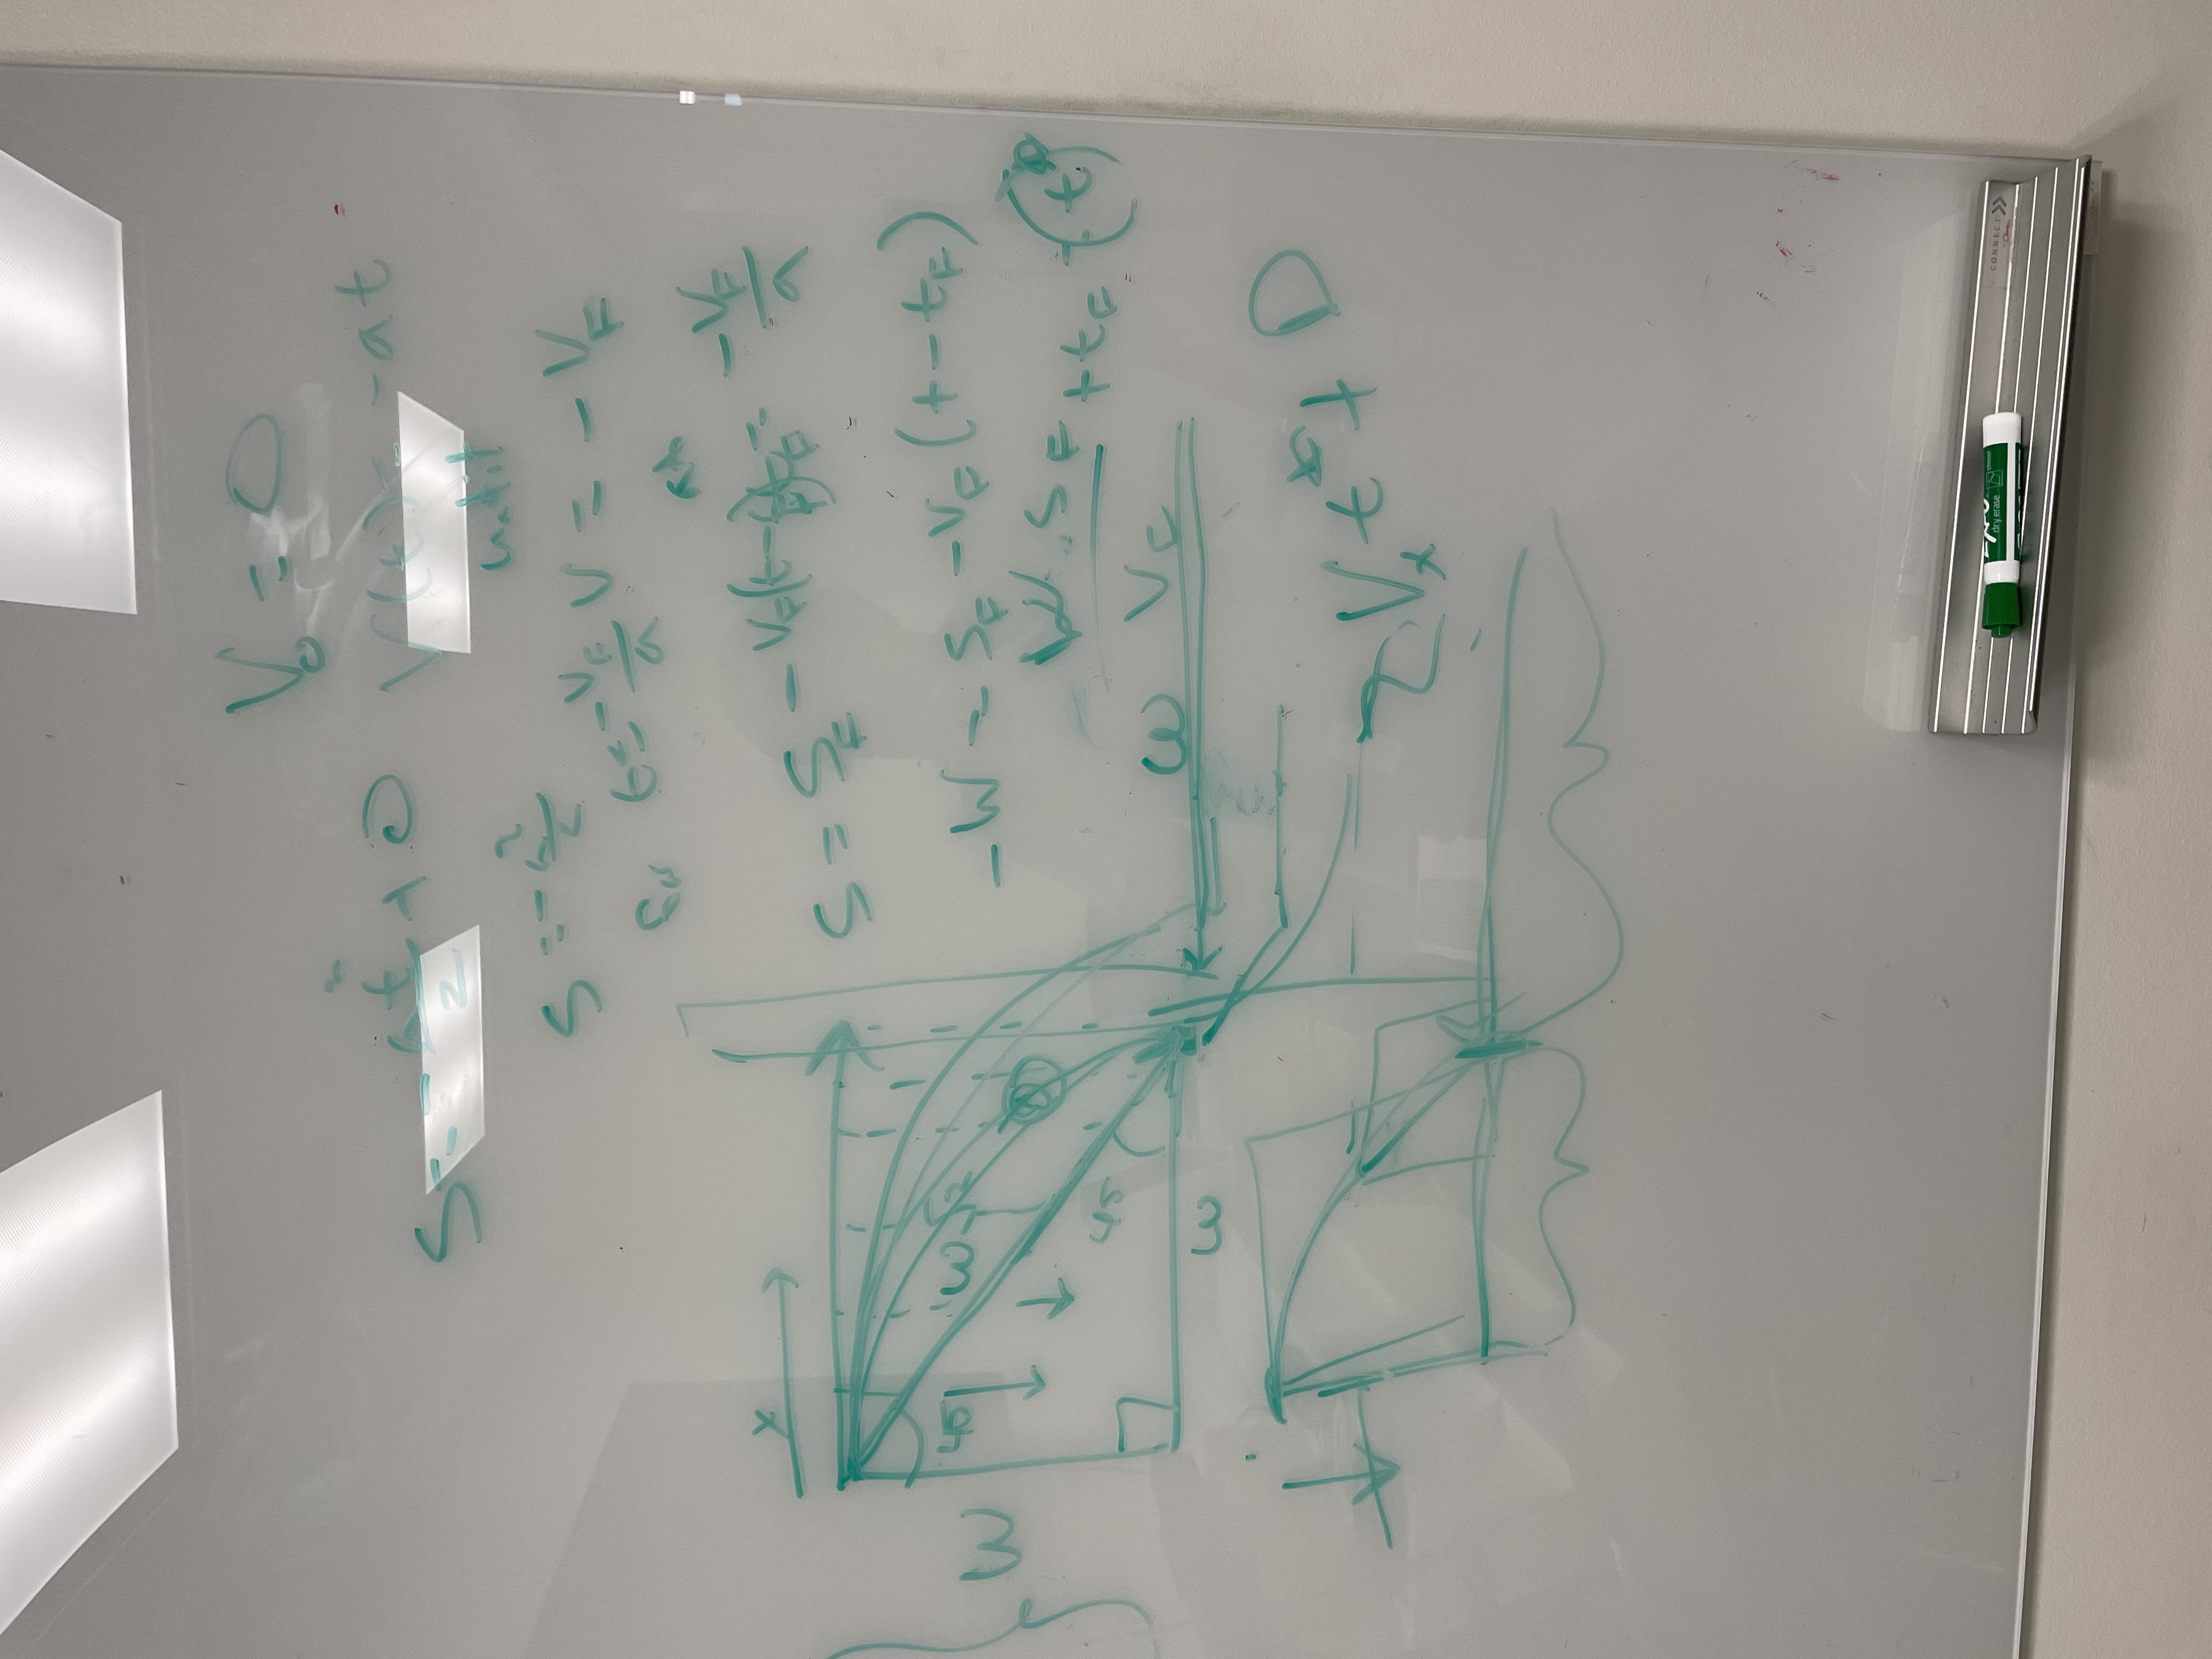 V₀ = 0
S = - at²/2 + 0
V(t) = -at
until
S = -
t = -V_F/a
V = -V_F
at
S = S_F - V_F(t - t_F)
t_F = -V_F/a
-W = S_F - V_F(t - t_F)
W S_F + t_F = t
V_F
x
W
45
W√2
45
W
W
V_x t* + D
EXPO
dry erase
chisel
CONNECT